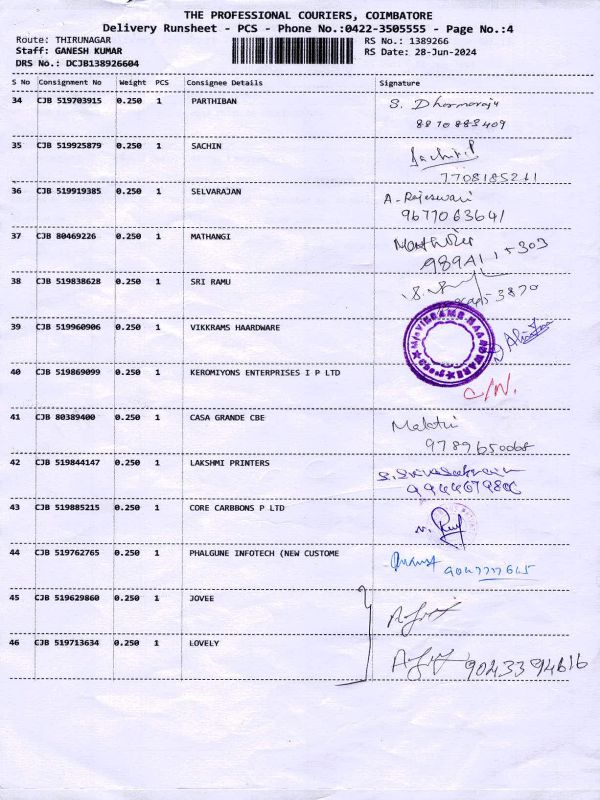 THE PROFESSIONAL COURIERS, COIMBATORE
Delivery Runsheet - PCS - Phone No.:0422-3505555 - Page No.:4
Route: THIRUNAGAR RS No.: 1389266
Staff: GANESH KUMAR RS Date: 28-Jun-2024
DRS No.: DCJB138926604
S No Consignment No Weight PCS Consignee Details Signature
34 CJB 519703915 0.250 1 PARTHIBAN S. Dharmaraju
8870883409
35 CJB 519925879 0.250 1 SACHIN Sachin.P
7708185211
36 CJB 519919385 0.250 1 SELVARAJAN A-Rajeswari
9677063641
37 CJB 80469226 0.250 1 MATHANGI
38 CJB 519838628 0.250 1 SRI RAMU
39 CJB 519960906 0.250 1 VIKKRAMS HAARDWARE
40 CJB 519869099 0.250 1 KEROMIYONS ENTERPRISES I P LTD C/N.
41 CJB 80389400 0.250 1 CASA GRANDE CBE
9789650068
42 CJB 519844147 0.250 1 LAKSHMI PRINTERS
43 CJB 519885215 0.250 1 CORE CARBBONS P LTD
44 CJB 519762765 0.250 1 PHALGUNE INFOTECH (NEW CUSTOME
45 CJB 519629860 0.250 1 JOVEE
46 CJB 519713634 0.250 1 LOVELY 9043394616